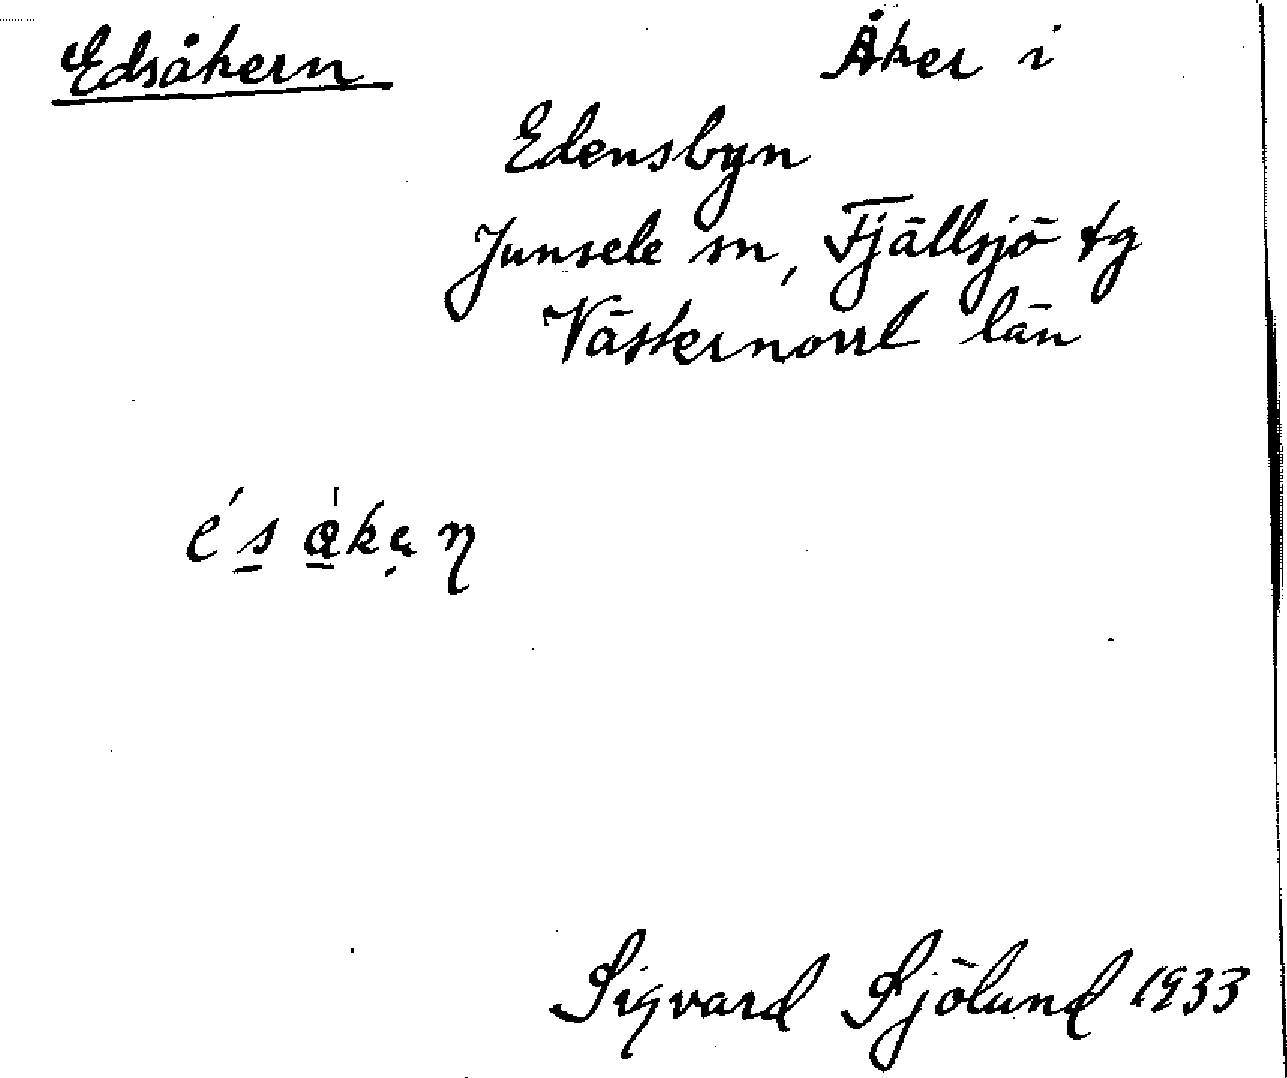 Edsåkern Åker i
Edensbyn
Junsele sn, Fjällsjö tg
Västernorrl län
Sigvard Sjölund 1933